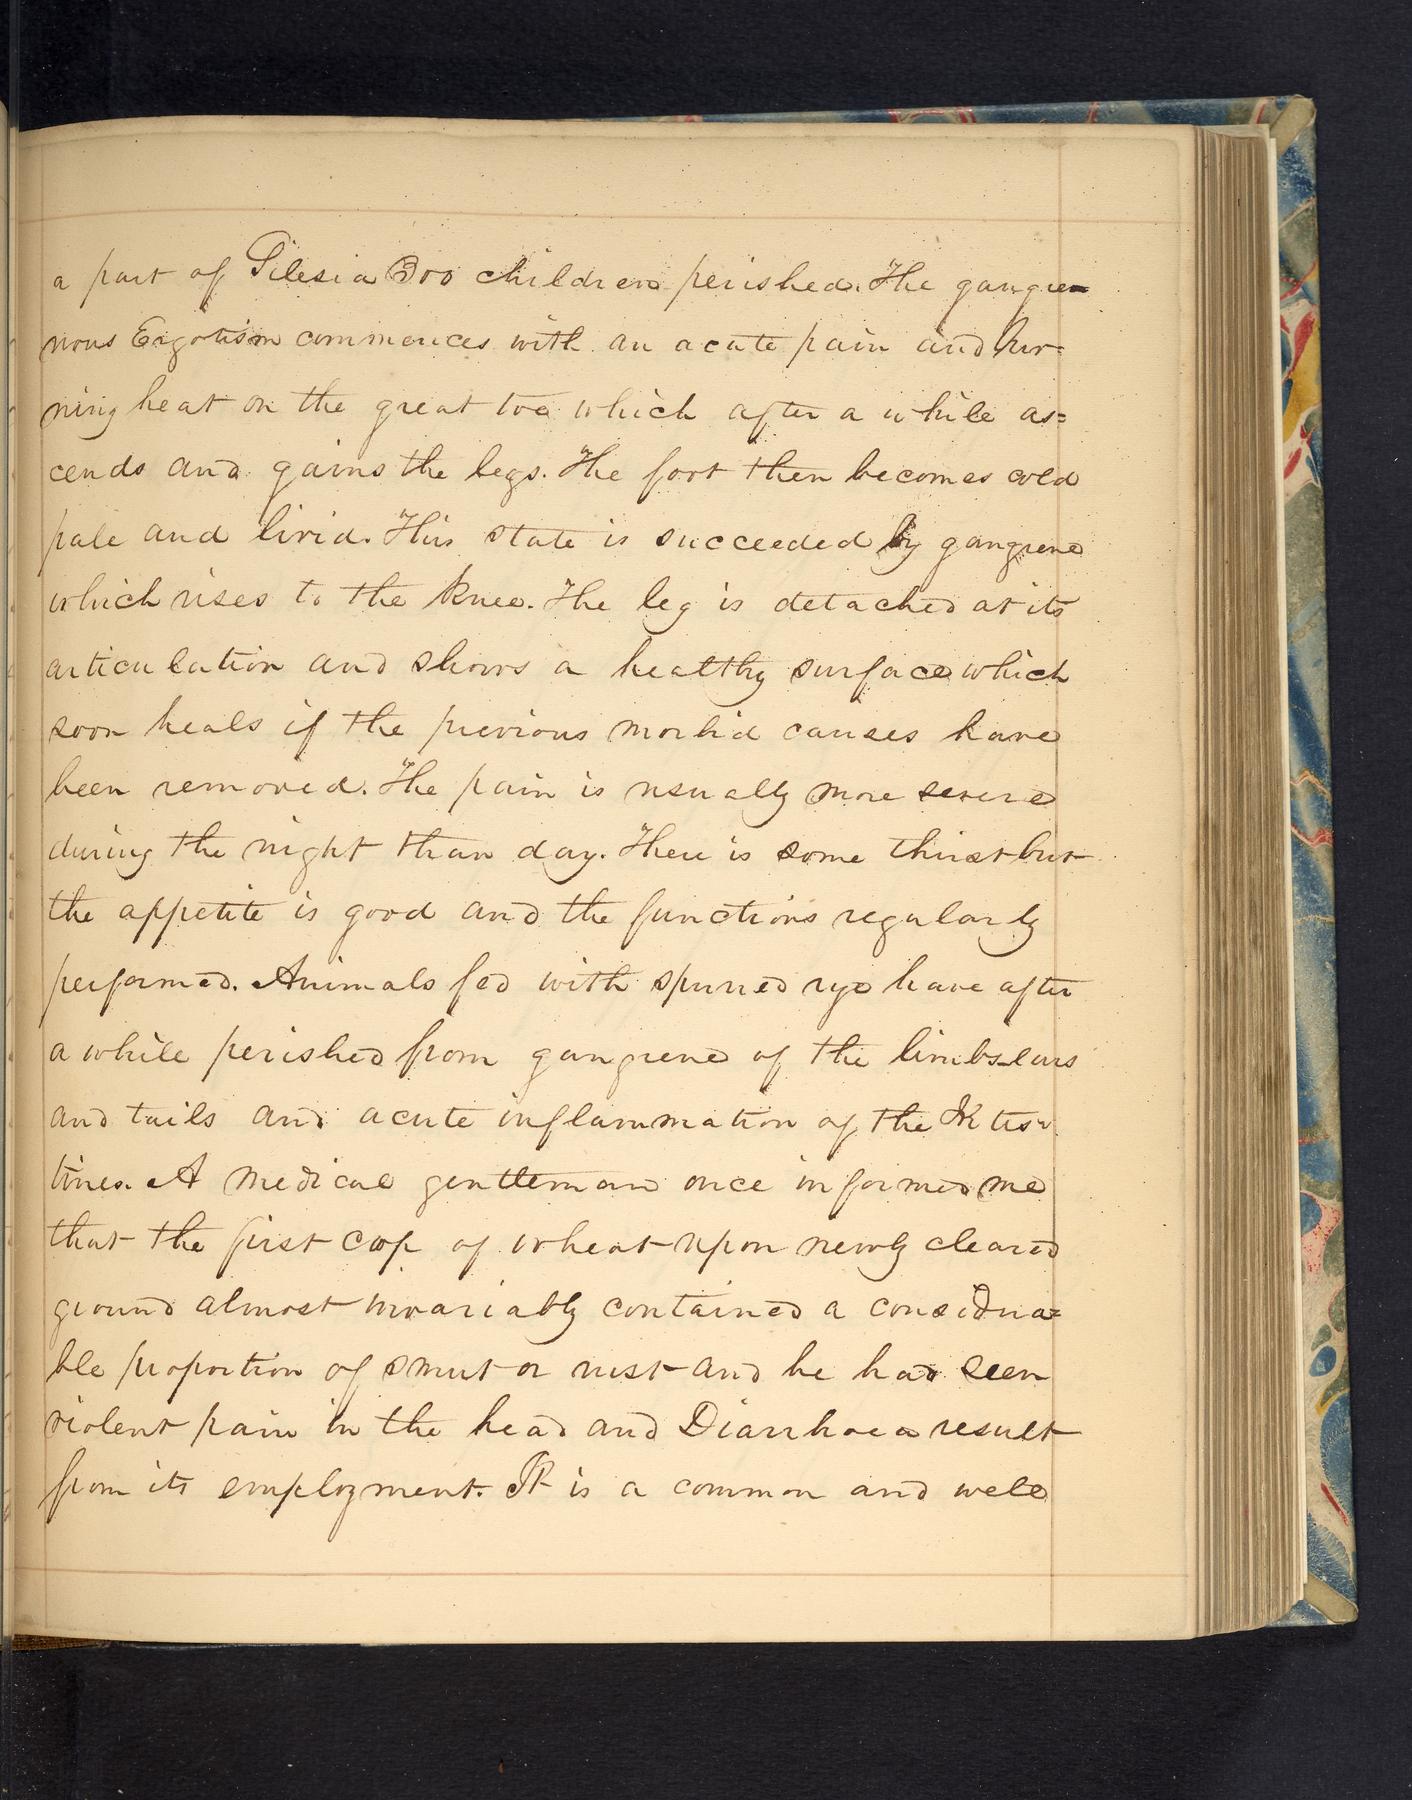 a part of Silesia 300 children perished. The gangre=
nous Ergotism commences with an acute pain and bur=
ning heat on the great toe which after a while as=
cends and gains the legs. The foot then becomes cold
pale and livid. This state is succeeded by gangrene
which rises to the knee. The leg is detached at its
articulation and shows a healthy surface which
soon heals if the previous morbid causes have
been removed. The pain is usually more severe
during the night than day. There is some thirst but
the appetite is good and the functions regularly
performed. Animals fed with spurred rye have after
a while perished from gangrene of the limbs ears
and tails and acute inflammation of the Intes=
tines. A medical gentleman once informed me
that the first crop of wheat upon newly cleared
ground almost invariably contained a considera=
ble proportion of smut or rust and he had seen
violent pain in the head and Diarrhoea result
from its employment. It is a common and well